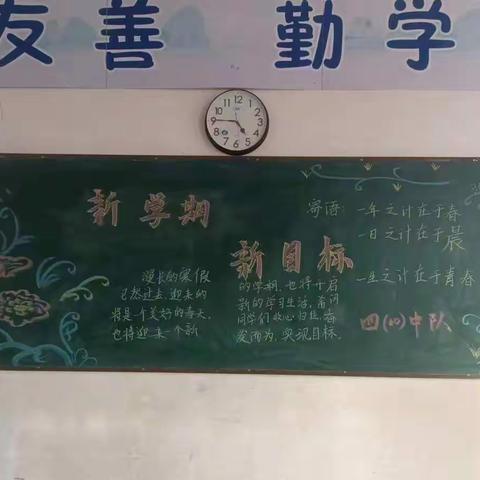 友善 勤学
12
1
2
3
4
5
6
7
8
9
10
11
新学期
新目标
漫长的寒假
已然过去,迎来的
将是一个美好的春天,
也将迎来一个新
的学期,也将开启
新的学习生活,希同
同学们收心归位,奋
发而为,实现目标。
寄语:一年之计在于春
一日之计在于晨
一生之计在于青春
四(四)中队